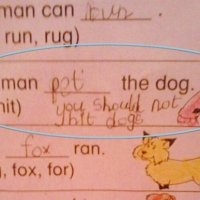 man can run .
run, rug)
man pet the dog.
hit) you should not
hit dogs
fox ran.
, fox, for)